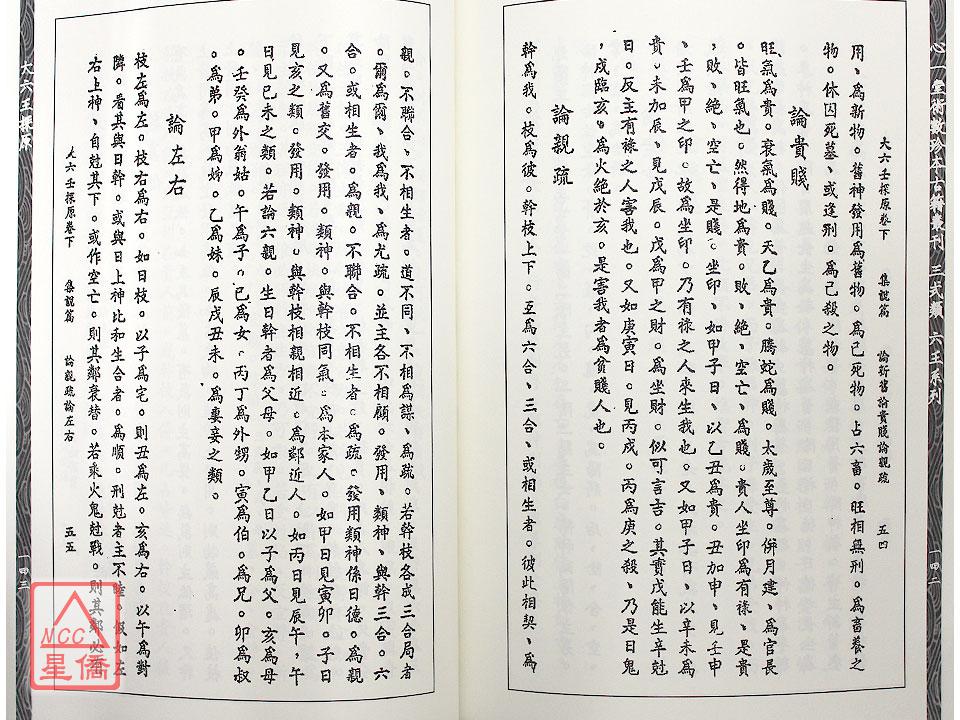 心一堂術數珍本古籍叢刊 三式類 六壬系列
一四二
大六壬探原卷下 集說篇 論新舊論貴賤論親疏 五四
用、爲新物。舊神發用爲舊物。爲已死物。占六畜。旺相無刑。爲畜養之
物。休囚死墓、或逢刑。爲已殺之物。
論貴賤
旺氣爲貴。衰氣爲賤。天乙爲貴。騰蛇爲賤。太歲至尊。併月建、爲官長
。皆旺氣也。然得地爲貴。敗、絕、空亡、爲賤。貴人坐印爲有祿、是貴
，敗、絕、空亡、是賤。坐印、如甲子日、以乙丑爲貴。丑加申、見壬申
、壬爲甲之印。故爲坐印。乃有祿之人來生我也。又如甲子日、以辛未爲
貴。未加辰、見戊辰。戊爲甲之財。爲坐財。似可言吉。其實戊能生辛尅
日。反主有祿之人害我也。又如庚寅日。見丙戌。丙爲庚之殺、乃是日鬼
，戌臨亥、爲火絕於亥。是害我者爲貧賤人也。
論親疏
幹爲我。枝爲彼。幹枝上下。互爲六合、三合、或相生者。彼此相契、爲
親。不聯合、不相生者。道不同、不相爲謀、爲疏。若幹枝各成三合局者
。爾爲爾、我爲我、爲尤疏。並主各不相顧。發用、類神、與幹三合。六
合。或相生者。爲親。不聯合。不相生者。爲疏。發用類神係日德。爲親
。又爲舊交。發用。類神。與幹枝同氣。爲本家人。如甲日見寅卯。子日
見亥之類。發用。類神。與幹枝相親相近。爲鄰近人。如丙日見辰午，午
日見巳未之類。若論六親。生日幹者爲父母。如甲乙日以子爲父。亥爲母
。壬癸爲外翁姑。午爲子。巳爲女。丙丁爲外甥。寅爲伯。爲兄。卯爲叔
。爲弟。甲爲姊。乙爲妹。辰戌丑未。爲妻妾之類。
論左右
枝左爲左。枝右爲右。如日枝。以子爲宅。則丑爲左。亥爲右。以午爲對
隣。看其與日幹。或與日上神比和生合者。爲順。刑尅者主不睦。假如左
右上神、自尅其下。或作空亡。則其鄰衰替。若乘火鬼尅戰。則其鄰必
大六壬探原卷下 集說篇 論親疏論左右 五五
大六壬探原
一四三
NCC
星僑